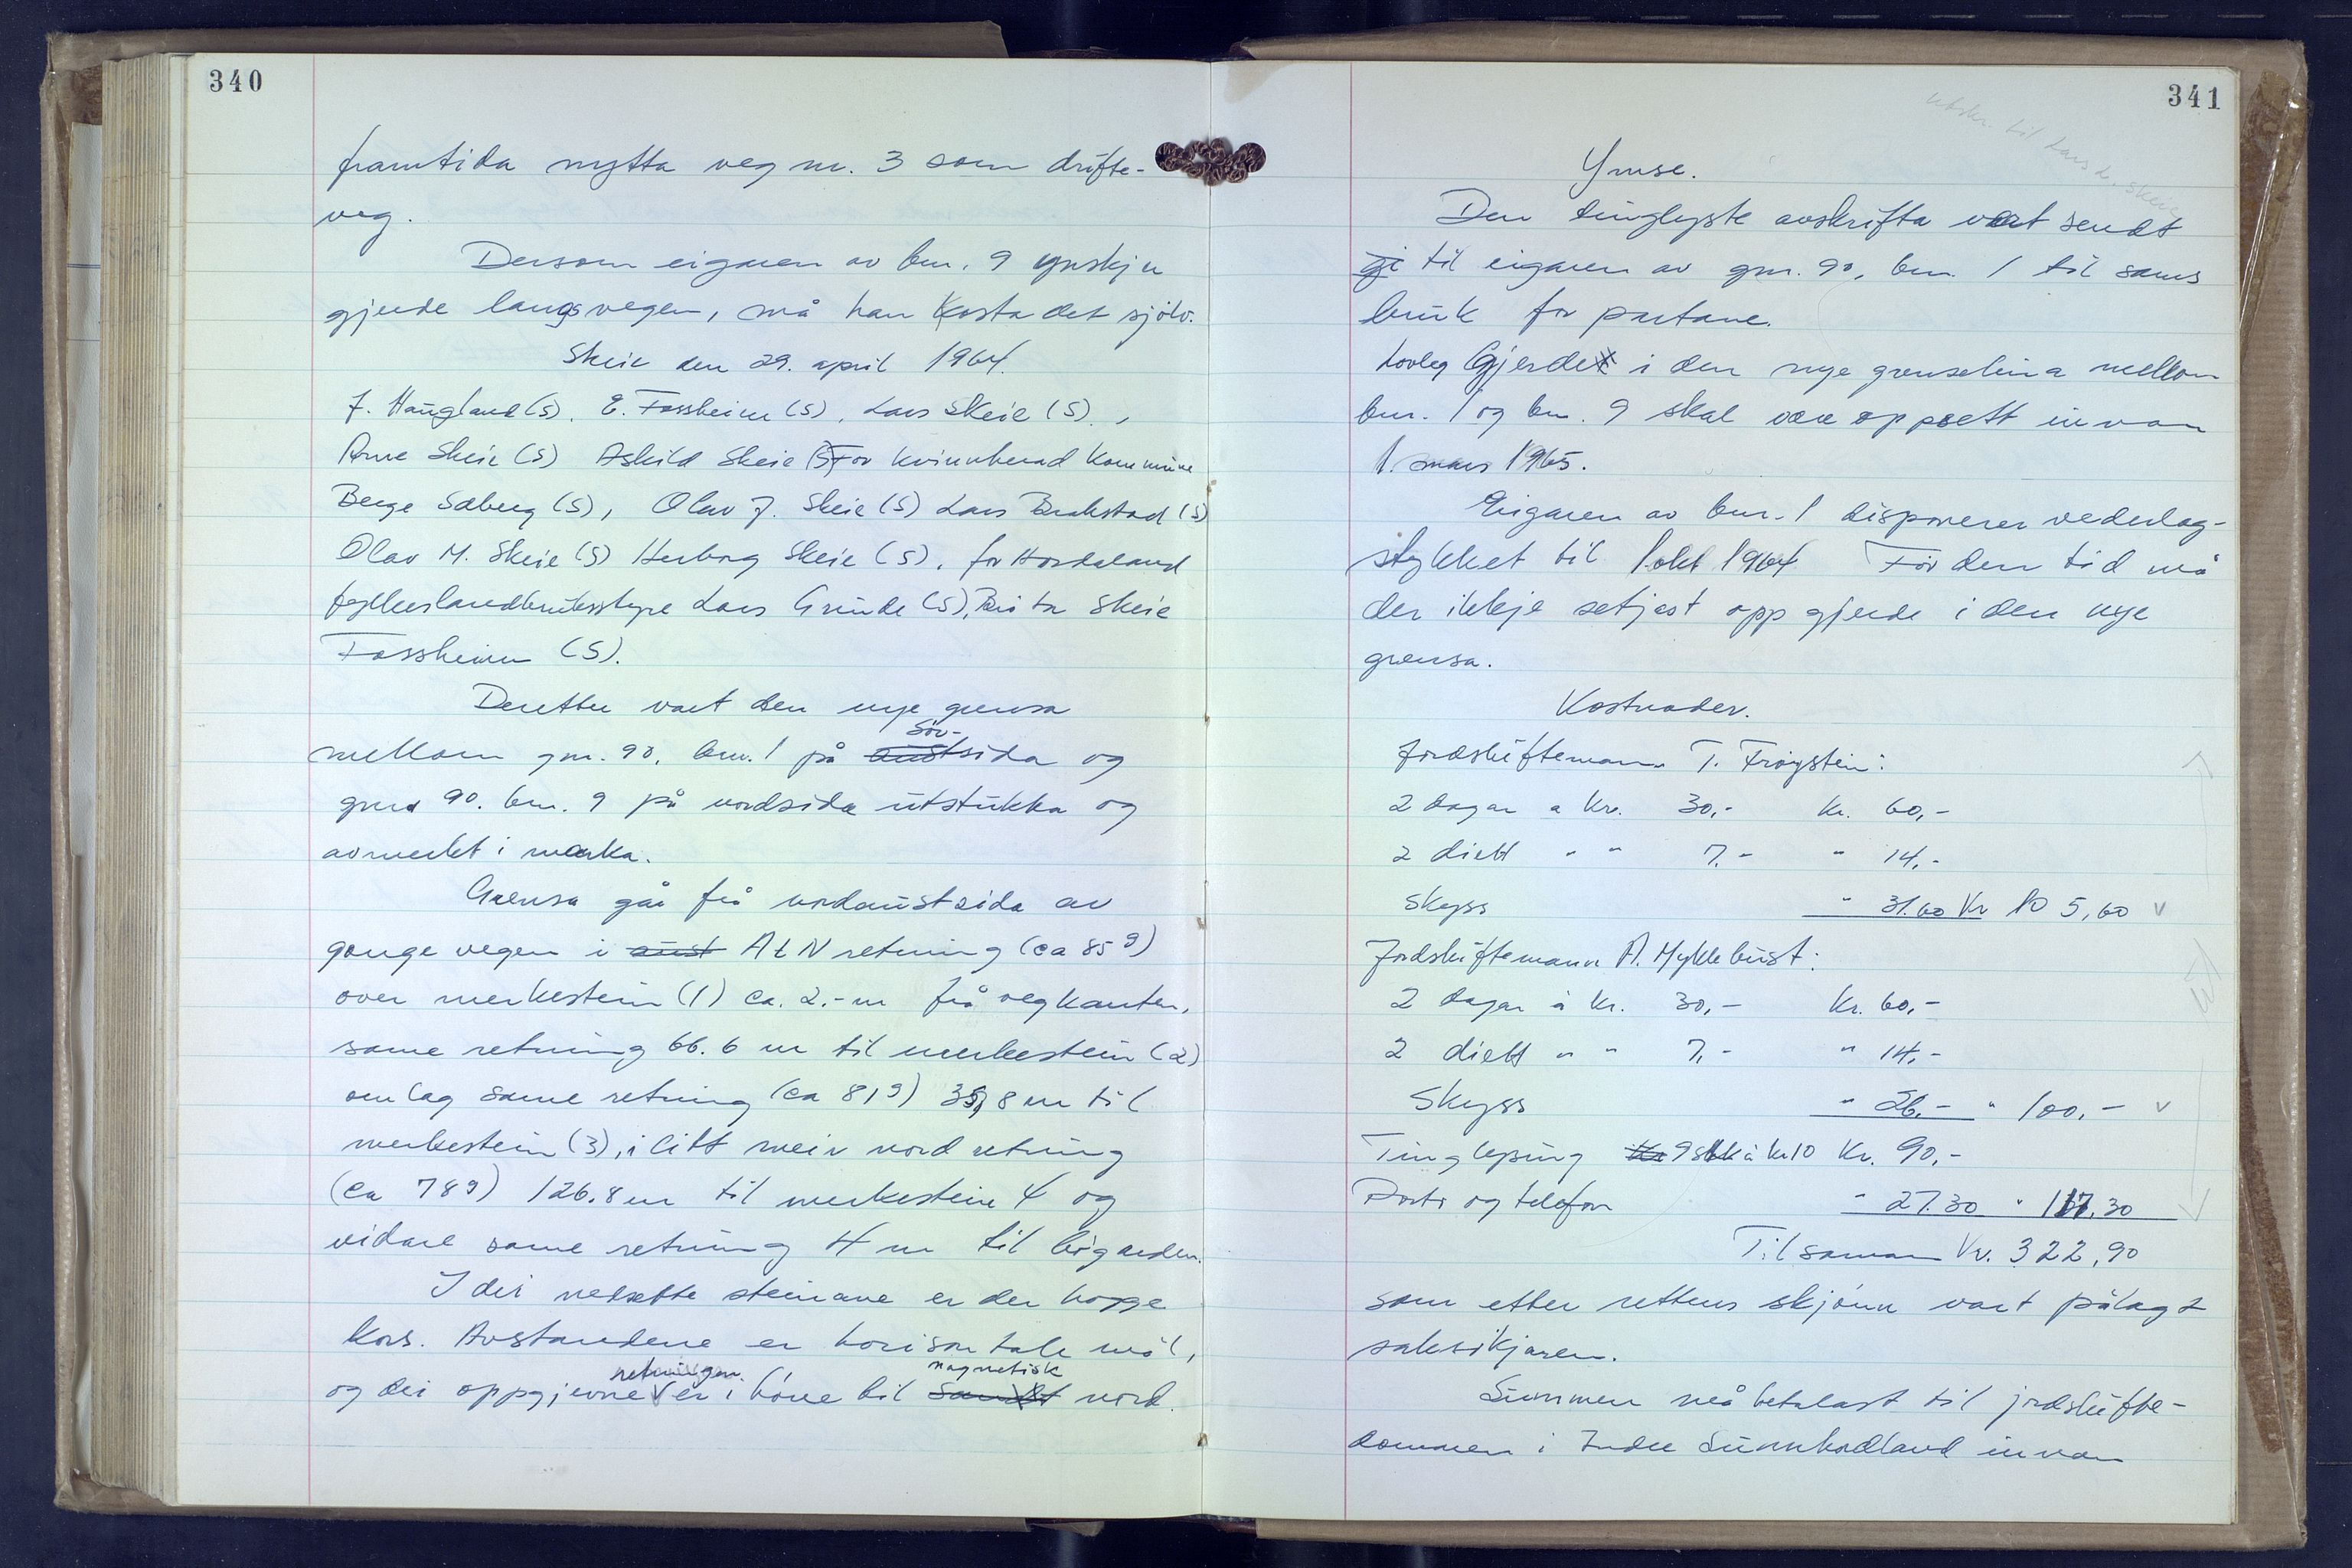 340
framtida nytta veg nr. 3 som drifte-
veg.
Dersom eigaren av bnr. 9 ynskjer
gjerde langs vegen, må han kosta det sjølv.
Skeie den 29. april 1964.
J. Haugland (S). E. Fossheim (S), Lars Skeie (S).,
Arne Skeie (S) Askild Skeie (S) For Kvinnherad Kommune
Berge Sæberg (S), Olav J. Skeie (S) Lars Brekstad (S)
Olav M. Skeie (S) Herborg Skeie (S), for Hordaland
fylkeslandbruksstyre Lars Grude (S), Brita Skeie
Fossheim (S).
Deretter vart den nye grensa
sør-
mellom gnr. 90, bnr. 1 på austsida og
gnr 90. bnr. 9 på nordsida utstukka og
avmerkt i marka.
Grensa går frå nordaustsida av
gonge vegen i aust A t N retning (ca 85 g)
over merkestein (1) ca. 2.- m frå vegkanten,
same retning 66.6 m til merkestein (2)
om lag same retning (ca 81 g) 35,8 m til
merkestein (3), i litt meir nord retning
(ca 78 g) 126.8 m til merkestein 4 og
vidare same retning 4 m til bøgarden.
I dei nedsette steinane er der hogge
kors. Avstandene er horisontale mål,
retningar magnetisk
og dei oppgjevne er i høve til nord.
341
utskr. til Lars d. Skeie
Ymse.
Den tinglyste avskrifta vart sendt
gi til eigaren av gnr. 90, bnr. 1 til sams
bruk for partane.
Lovleg Gjerde i den nye grenselina mellom
bnr. 1 og bnr. 9 skal være oppsett innan
1. mars 1965.
Eigaren av bnr. 1 disponerer vederlag-
stykket til 1. okt 1964 Før den tid må
der ikkje setjast opp gjerde i den nye
grensa.
Kostnader.
Jordskiftemann T. Frøystein:
2 dagar a Kr. 30,- Kr. 60,-
2 diett " " 7.- " 14,-
Skyss " 31.60 Kr 105,60 v
Jordskiftemann A. Myklebust:
2 dagar à Kr. 30,- Kr. 60,-
2 diett " " 7,- " 14,-
Skyss " 26,- " 100,- v
Tinglysing Kr 9 stk à kr 10 Kr. 90,-
Porto og telefon " 27.30 " 117.30
Tilsaman Kr. 322,90
som etter rettens skjønn vart pålagt
saksøkjaren.
Summen må betalast til jordskifte-
dommaren i Indre Sunnhordland innan